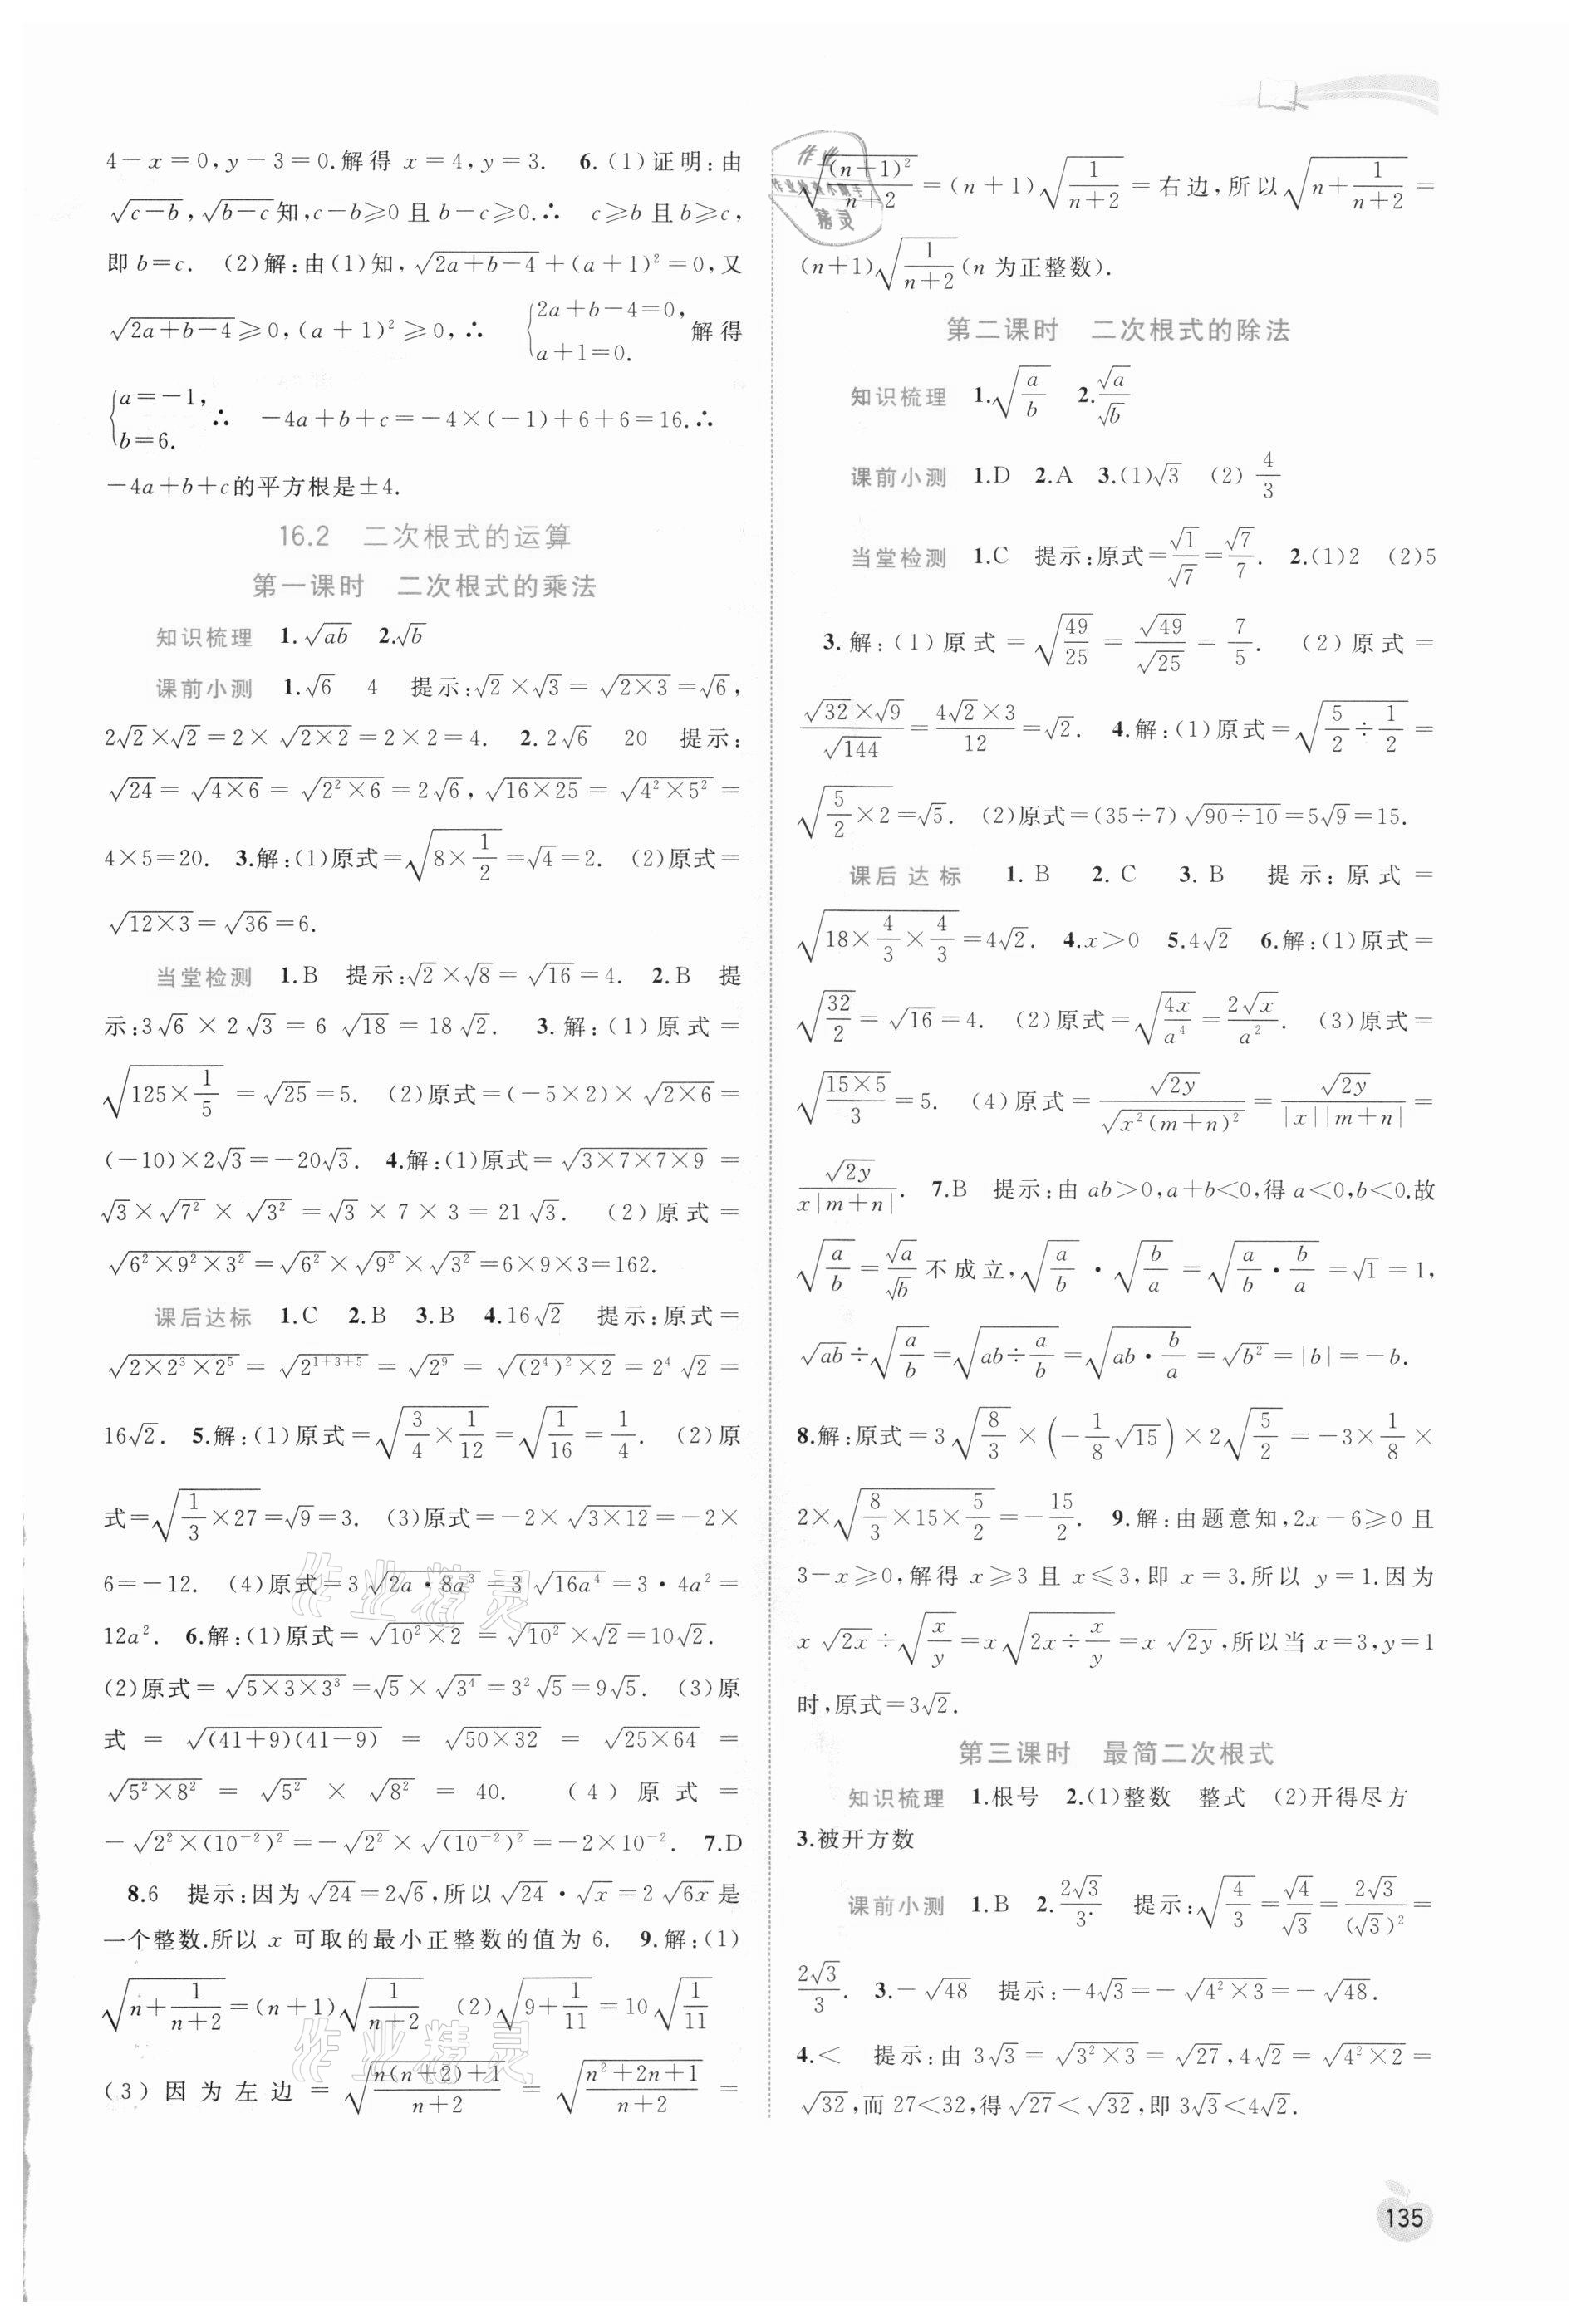 4－x＝0,y－3＝0.解得 x＝4,y＝3. 6.(1)证明:由
√(c－b),√(b－c)知,c－b≥0 且 b－c≥0.∴ c≥b 且 b≥c,
即 b＝c. (2)解:由(1)知,√(2a＋b－4)＋(a＋1)²＝0,又
√(2a＋b－4)≥0,(a＋1)²≥0,∴ {2a＋b－4＝0, a＋1＝0. 解得
{a＝－1, b＝6. ∴ －4a＋b＋c＝－4×(－1)＋6＋6＝16.∴
－4a＋b＋c的平方根是±4.
16.2 二次根式的运算
第一课时 二次根式的乘法
知识梳理 1.√(ab) 2.√b
课前小测 1.√6 4 提示:√2×√3＝√(2×3)＝√6,
2√2×√2＝2×√(2×2)＝2×2＝4. 2.2√6 20 提示:
√24＝√(4×6)＝√(2²×6)＝2√6,√(16×25)＝√(4²×5²)＝
4×5＝20. 3.解:(1)原式＝√(8×1/2)＝√4＝2. (2)原式＝
√(12×3)＝√36＝6.
当堂检测 1.B 提示:√2×√8＝√16＝4. 2.B 提
示:3√6×2√3＝6√18＝18√2. 3.解:(1)原式＝
√(125×1/5)＝√25＝5. (2)原式＝(－5×2)×√(2×6)＝
(－10)×2√3＝－20√3. 4.解:(1)原式＝√(3×7×7×9)＝
√3×√(7²)×√(3²)＝√3×7×3＝21√3. (2)原式＝
√(6²×9²×3²)＝√(6²)×√(9²)×√(3²)＝6×9×3＝162.
课后达标 1.C 2.B 3.B 4.16√2 提示:原式＝
√(2×2³×2⁵)＝√(2¹⁺³⁺⁵)＝√(2⁹)＝√((2⁴)²×2)＝2⁴√2＝
16√2. 5.解:(1)原式＝√(3/4×1/12)＝√(1/16)＝1/4. (2)原
式＝√(1/3×27)＝√9＝3. (3)原式＝－2×√(3×12)＝－2×
6＝－12. (4)原式＝3√(2a·8a³)＝3√(16a⁴)＝3·4a²＝
12a². 6.解:(1)原式＝√(10²×2)＝√(10²)×√2＝10√2.
(2)原式＝√(5×3×3³)＝√5×√(3⁴)＝3²√5＝9√5. (3)原
式＝√((41＋9)(41－9))＝√(50×32)＝√(25×64)＝
√(5²×8²)＝√(5²)×√(8²)＝40. (4)原式＝
－√(2²×(10⁻²)²)＝－√(2²)×√((10⁻²)²)＝－2×10⁻². 7.D
8.6 提示:因为√24＝2√6,所以√24·√x＝2√(6x)是
一个整数.所以 x 可取的最小正整数的值为 6. 9.解:(1)
√(n＋1/(n＋2))＝(n＋1)√(1/(n＋2)) (2)√(9＋1/11)＝10√(1/11)
(3)因为左边＝√((n(n＋2)＋1)/(n＋2))＝√((n²＋2n＋1)/(n＋2))＝
√((n＋1)²/(n＋2))＝(n＋1)√(1/(n＋2))＝右边,所以√(n＋1/(n＋2))＝
(n＋1)√(1/(n＋2))(n 为正整数).
第二课时 二次根式的除法
知识梳理 1.√(a/b) 2.√a/√b
课前小测 1.D 2.A 3.(1)√3 (2)4/3
当堂检测 1.C 提示:原式＝√1/√7＝√7/7. 2.(1)2 (2)5
3.解:(1)原式＝√(49/25)＝√49/√25＝7/5. (2)原式＝
(√32×√9)/√144＝(4√2×3)/12＝√2. 4.解:(1)原式＝√(5/2÷1/2)＝
√(5/2×2)＝√5. (2)原式＝(35÷7)√(90÷10)＝5√9＝15.
课后达标 1.B 2.C 3.B 提示:原式＝
√(18×4/3×4/3)＝4√2. 4.x＞0 5.4√2 6.解:(1)原式＝
√(32/2)＝√16＝4. (2)原式＝√(4x/a⁴)＝2√x/a². (3)原式＝
√(15×5/3)＝5. (4)原式＝√(2y)/√(x²(m＋n)²)＝√(2y)/(|x||m＋n|)＝
√(2y)/(x|m＋n|). 7.B 提示:由 ab＞0,a＋b＜0,得 a＜0,b＜0.故
√(a/b)＝√a/√b不成立,√(a/b)·√(b/a)＝√(a/b·b/a)＝√1＝1,
√(ab)÷√(a/b)＝√(ab÷a/b)＝√(ab·b/a)＝√(b²)＝|b|＝－b.
8.解:原式＝3√(8/3)×(－1/8√15)×2√(5/2)＝－3×1/8×
2×√(8/3×15×5/2)＝－15/2. 9.解:由题意知,2x－6≥0 且
3－x≥0,解得 x≥3 且 x≤3,即 x＝3.所以 y＝1.因为
x√(2x)÷√(x/y)＝x√(2x÷x/y)＝x√(2y),所以当 x＝3,y＝1
时,原式＝3√2.
第三课时 最简二次根式
知识梳理 1.根号 2.(1)整数 整式 (2)开得尽方
3.被开方数
课前小测 1.B 2.2√3/3. 提示:√(4/3)＝√4/√3＝2√3/(√3)²＝
2√3/3. 3.－√48 提示:－4√3＝－√(4²×3)＝－√48.
4.＜ 提示:由 3√3＝√(3²×3)＝√27,4√2＝√(4²×2)＝
√32,而 27＜32,得√27＜√32,即 3√3＜4√2.
135
作业精灵
作业精灵
作业
精灵